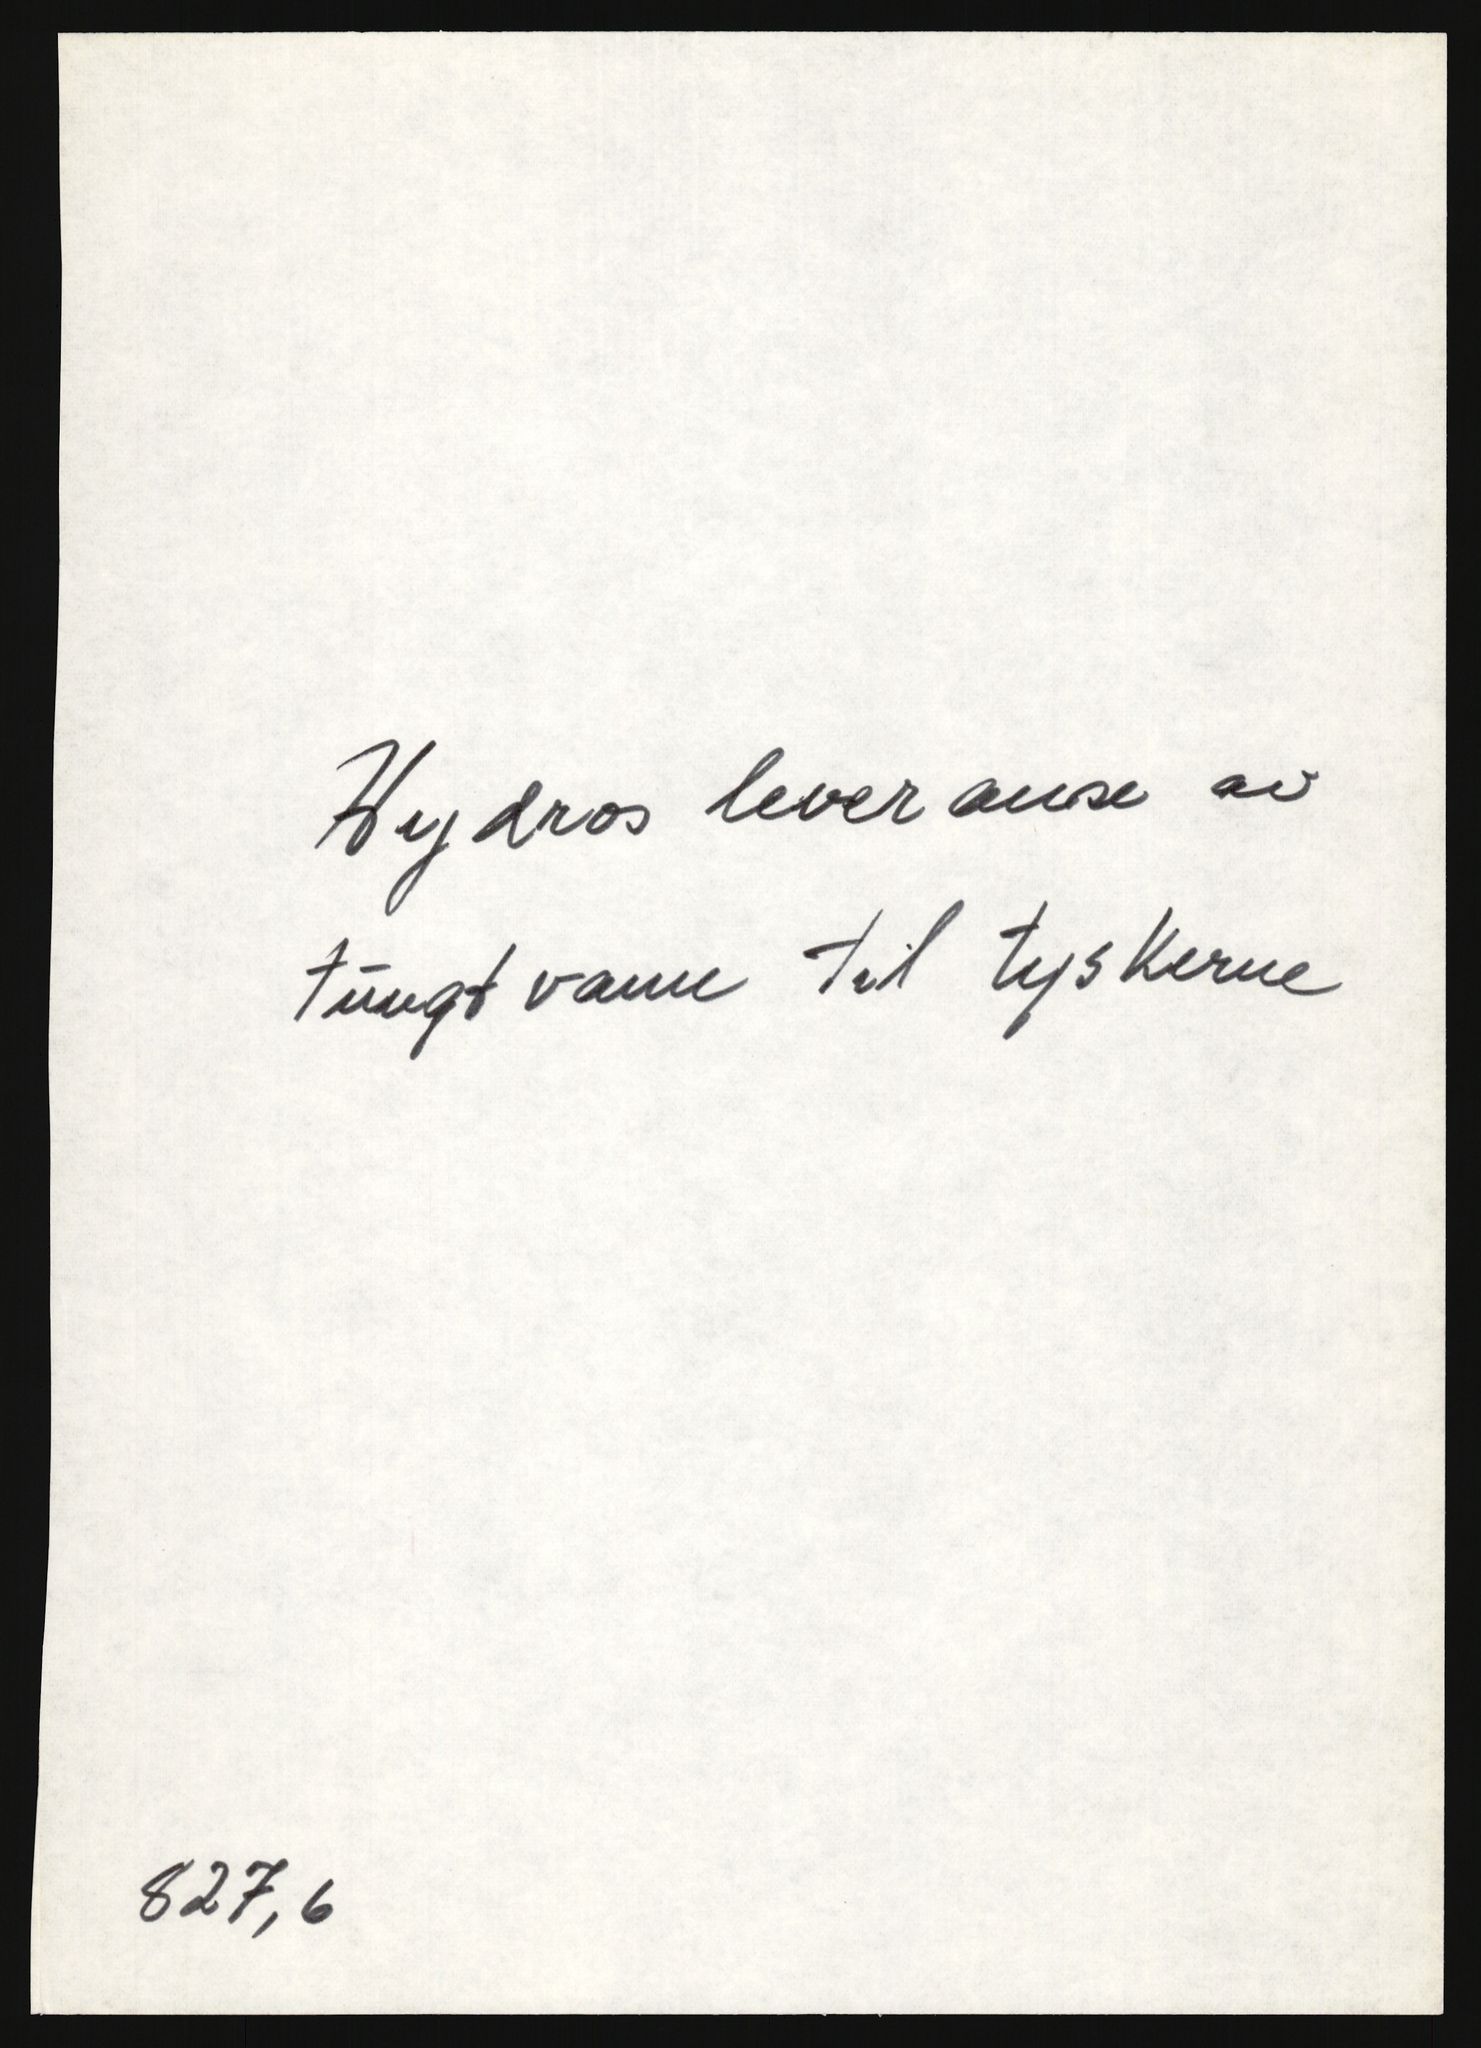 Hydros leveranse av
tungtvann til tyskerne
827,6